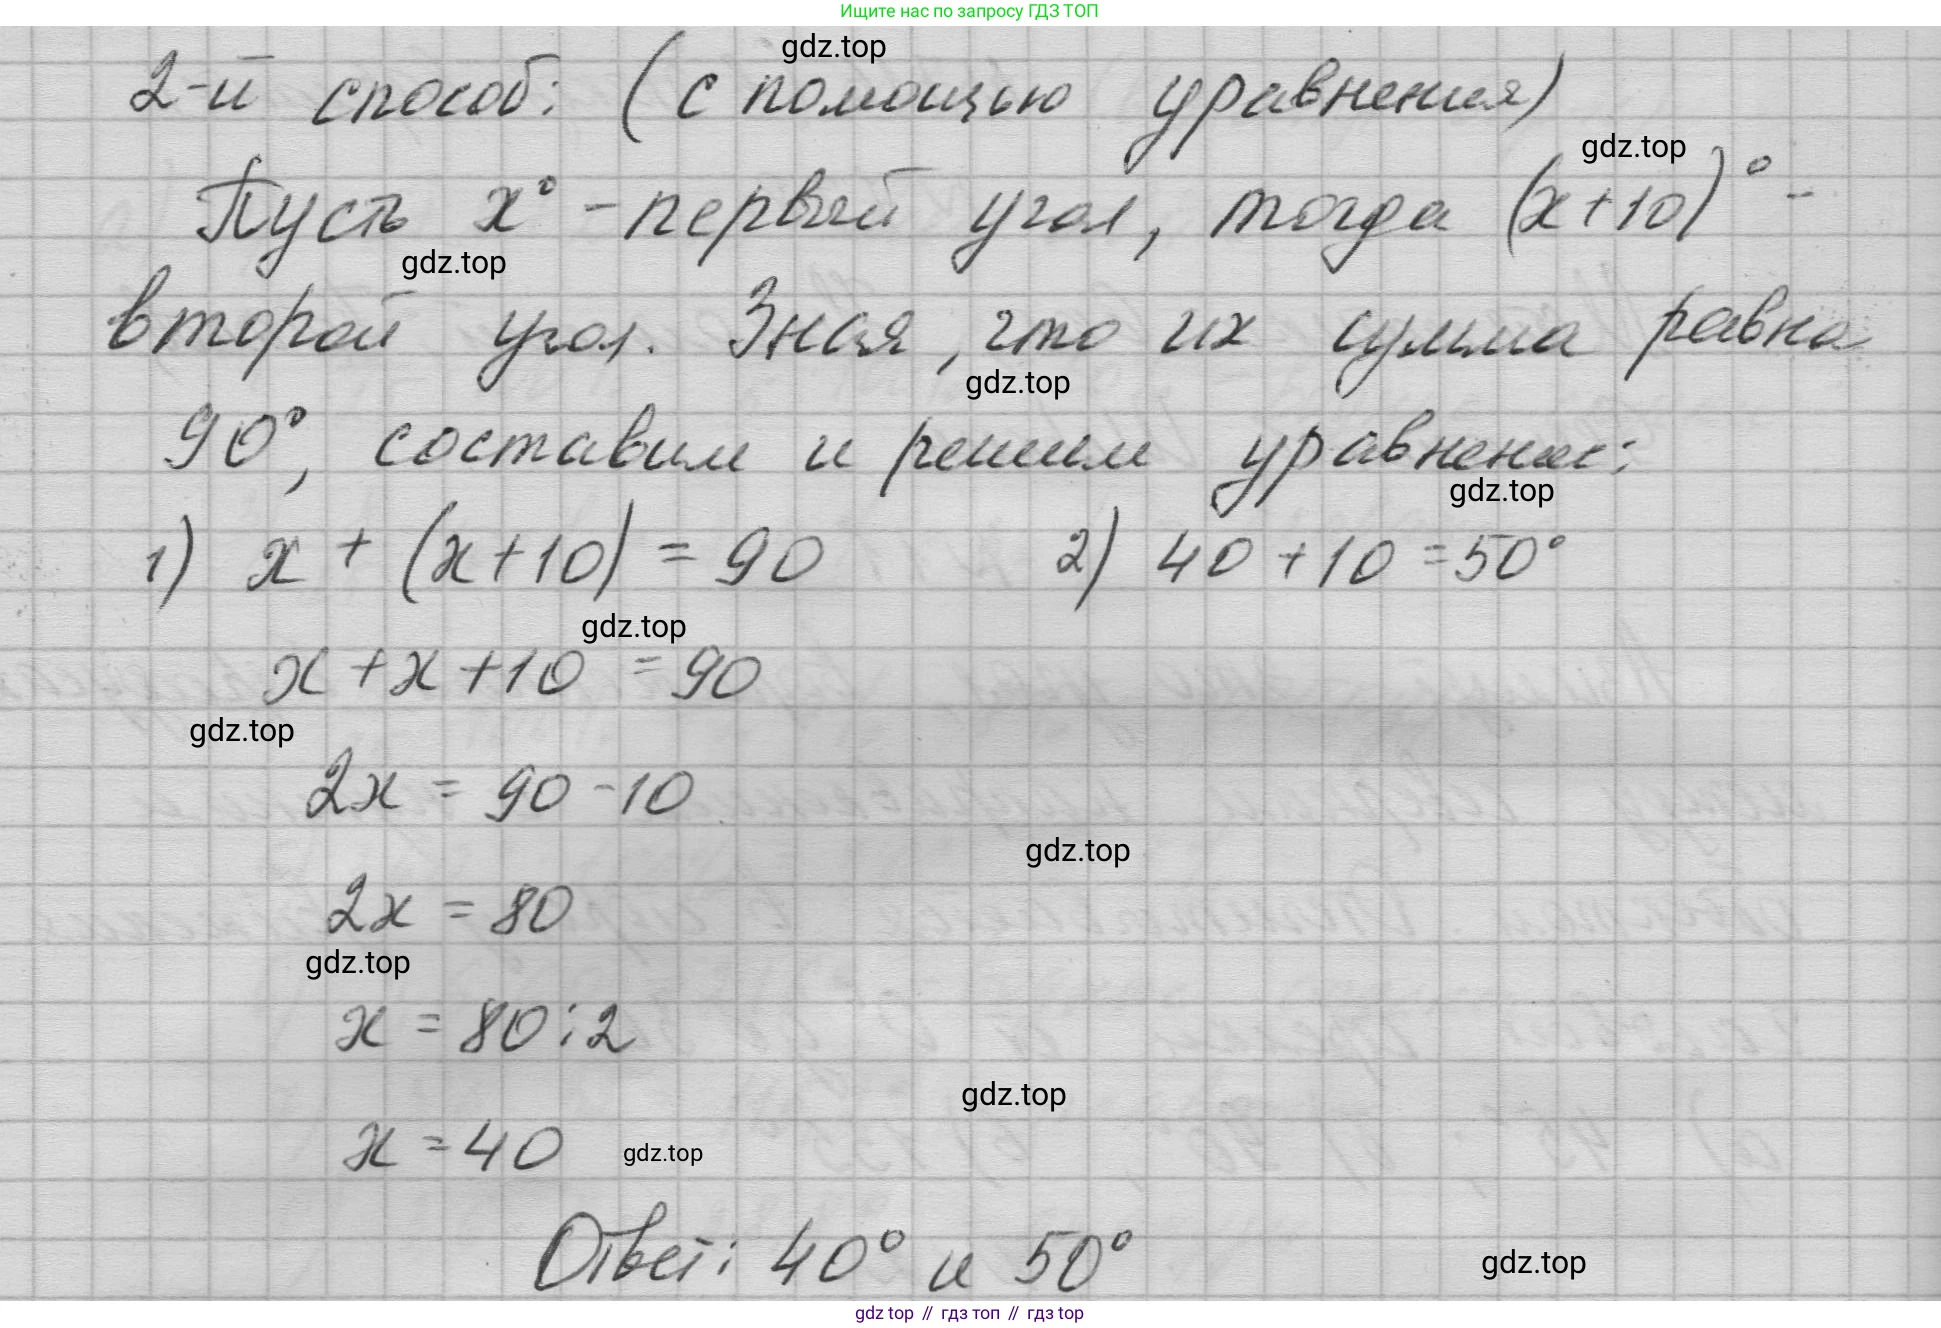 Ищите нас по запросу ГДЗ ТОП
gdz.top
2-й способ: (с помощью уравнения)
gdz.top
Пусть x° - первый угол, тогда (x+10)° -
gdz.top
второй угол. Зная, что их сумма равна
gdz.top
90°, составим и решим уравнение:
gdz.top
1) x + (x+10) = 90 2) 40 + 10 = 50°
gdz.top
x + x + 10 = 90
gdz.top
2x = 90 - 10
gdz.top
2x = 80
gdz.top
x = 80 : 2
gdz.top
x = 40 gdz.top
Ответ: 40° и 50°
gdz.top
gdz top // гдз топ // гдз top